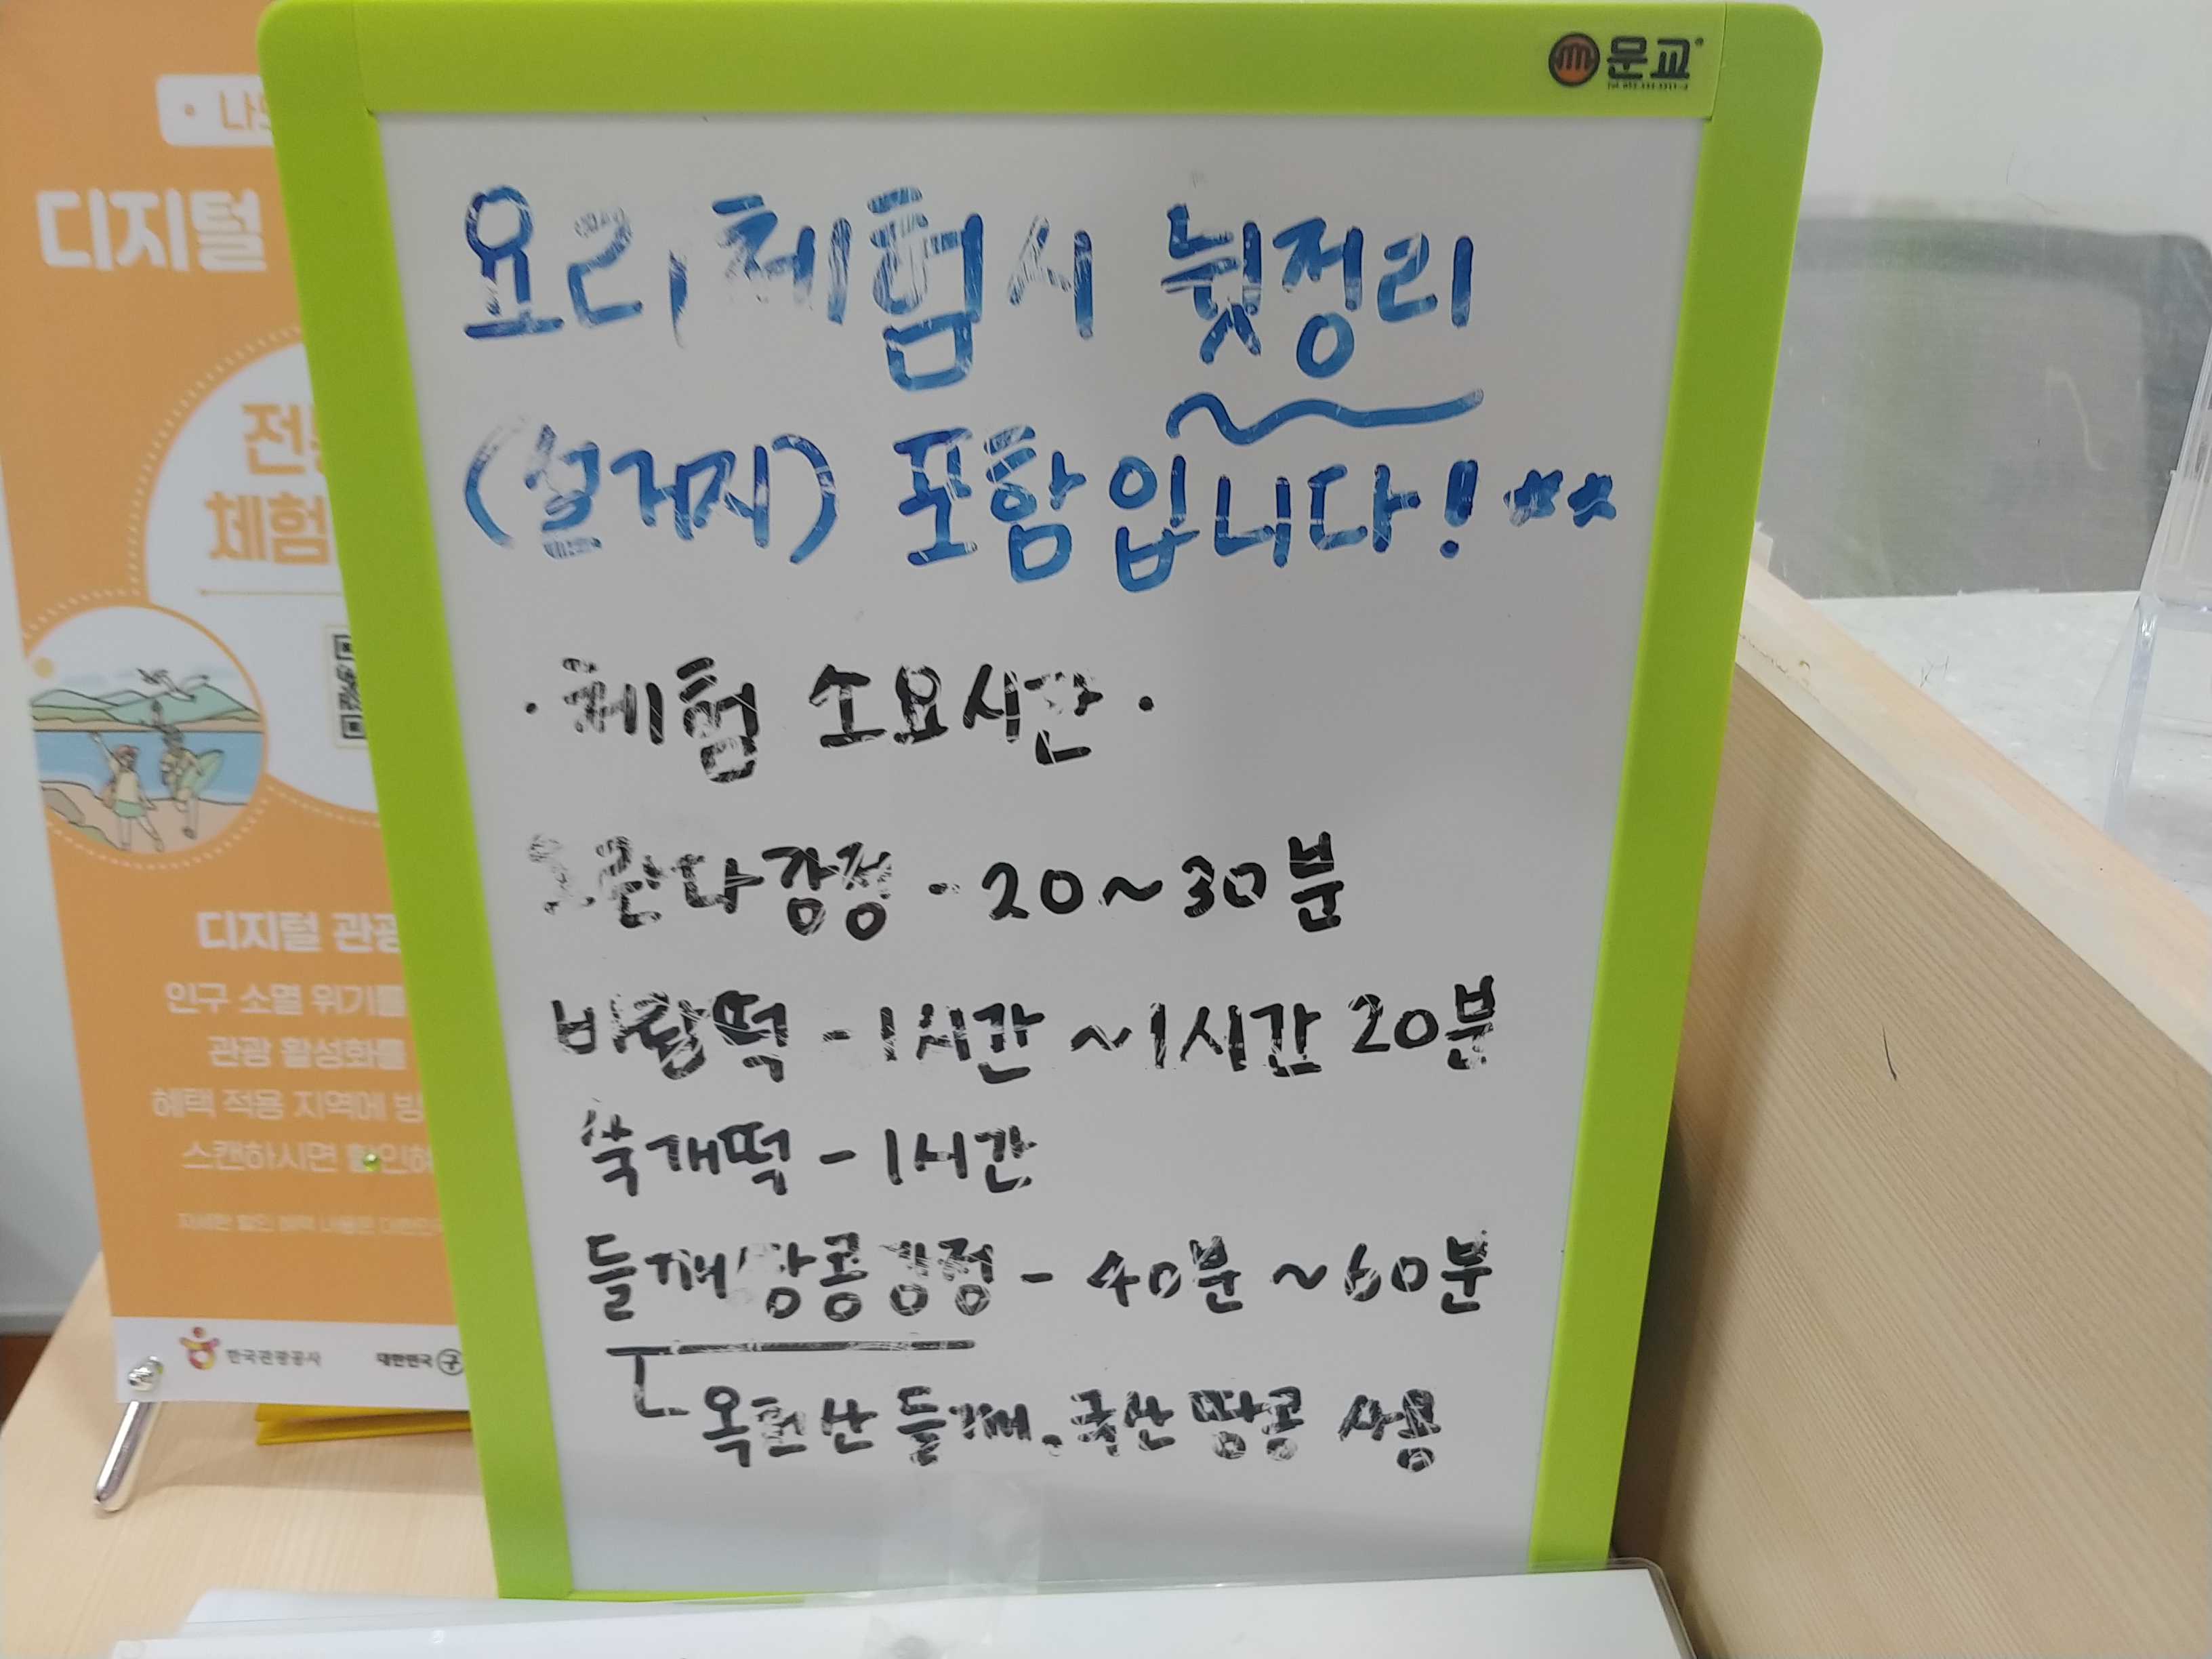 문교
요리체험시 뒷정리
(설거지) 포함입니다! **
· 체험 소요시간 ·
오란다강정 - 20~30분
바람떡 - 1시간 ~ 1시간 20분
쑥개떡 - 1시간
들깨땅콩강정 - 40분 ~ 60분
옥천산 들깨. 국산땅콩 사용
디지털
체험
디지털 관광
인구 소멸 위기를
관광 활성화를
혜택 적용 지역에
스캔하시면
한국관광공사
대한민국 구